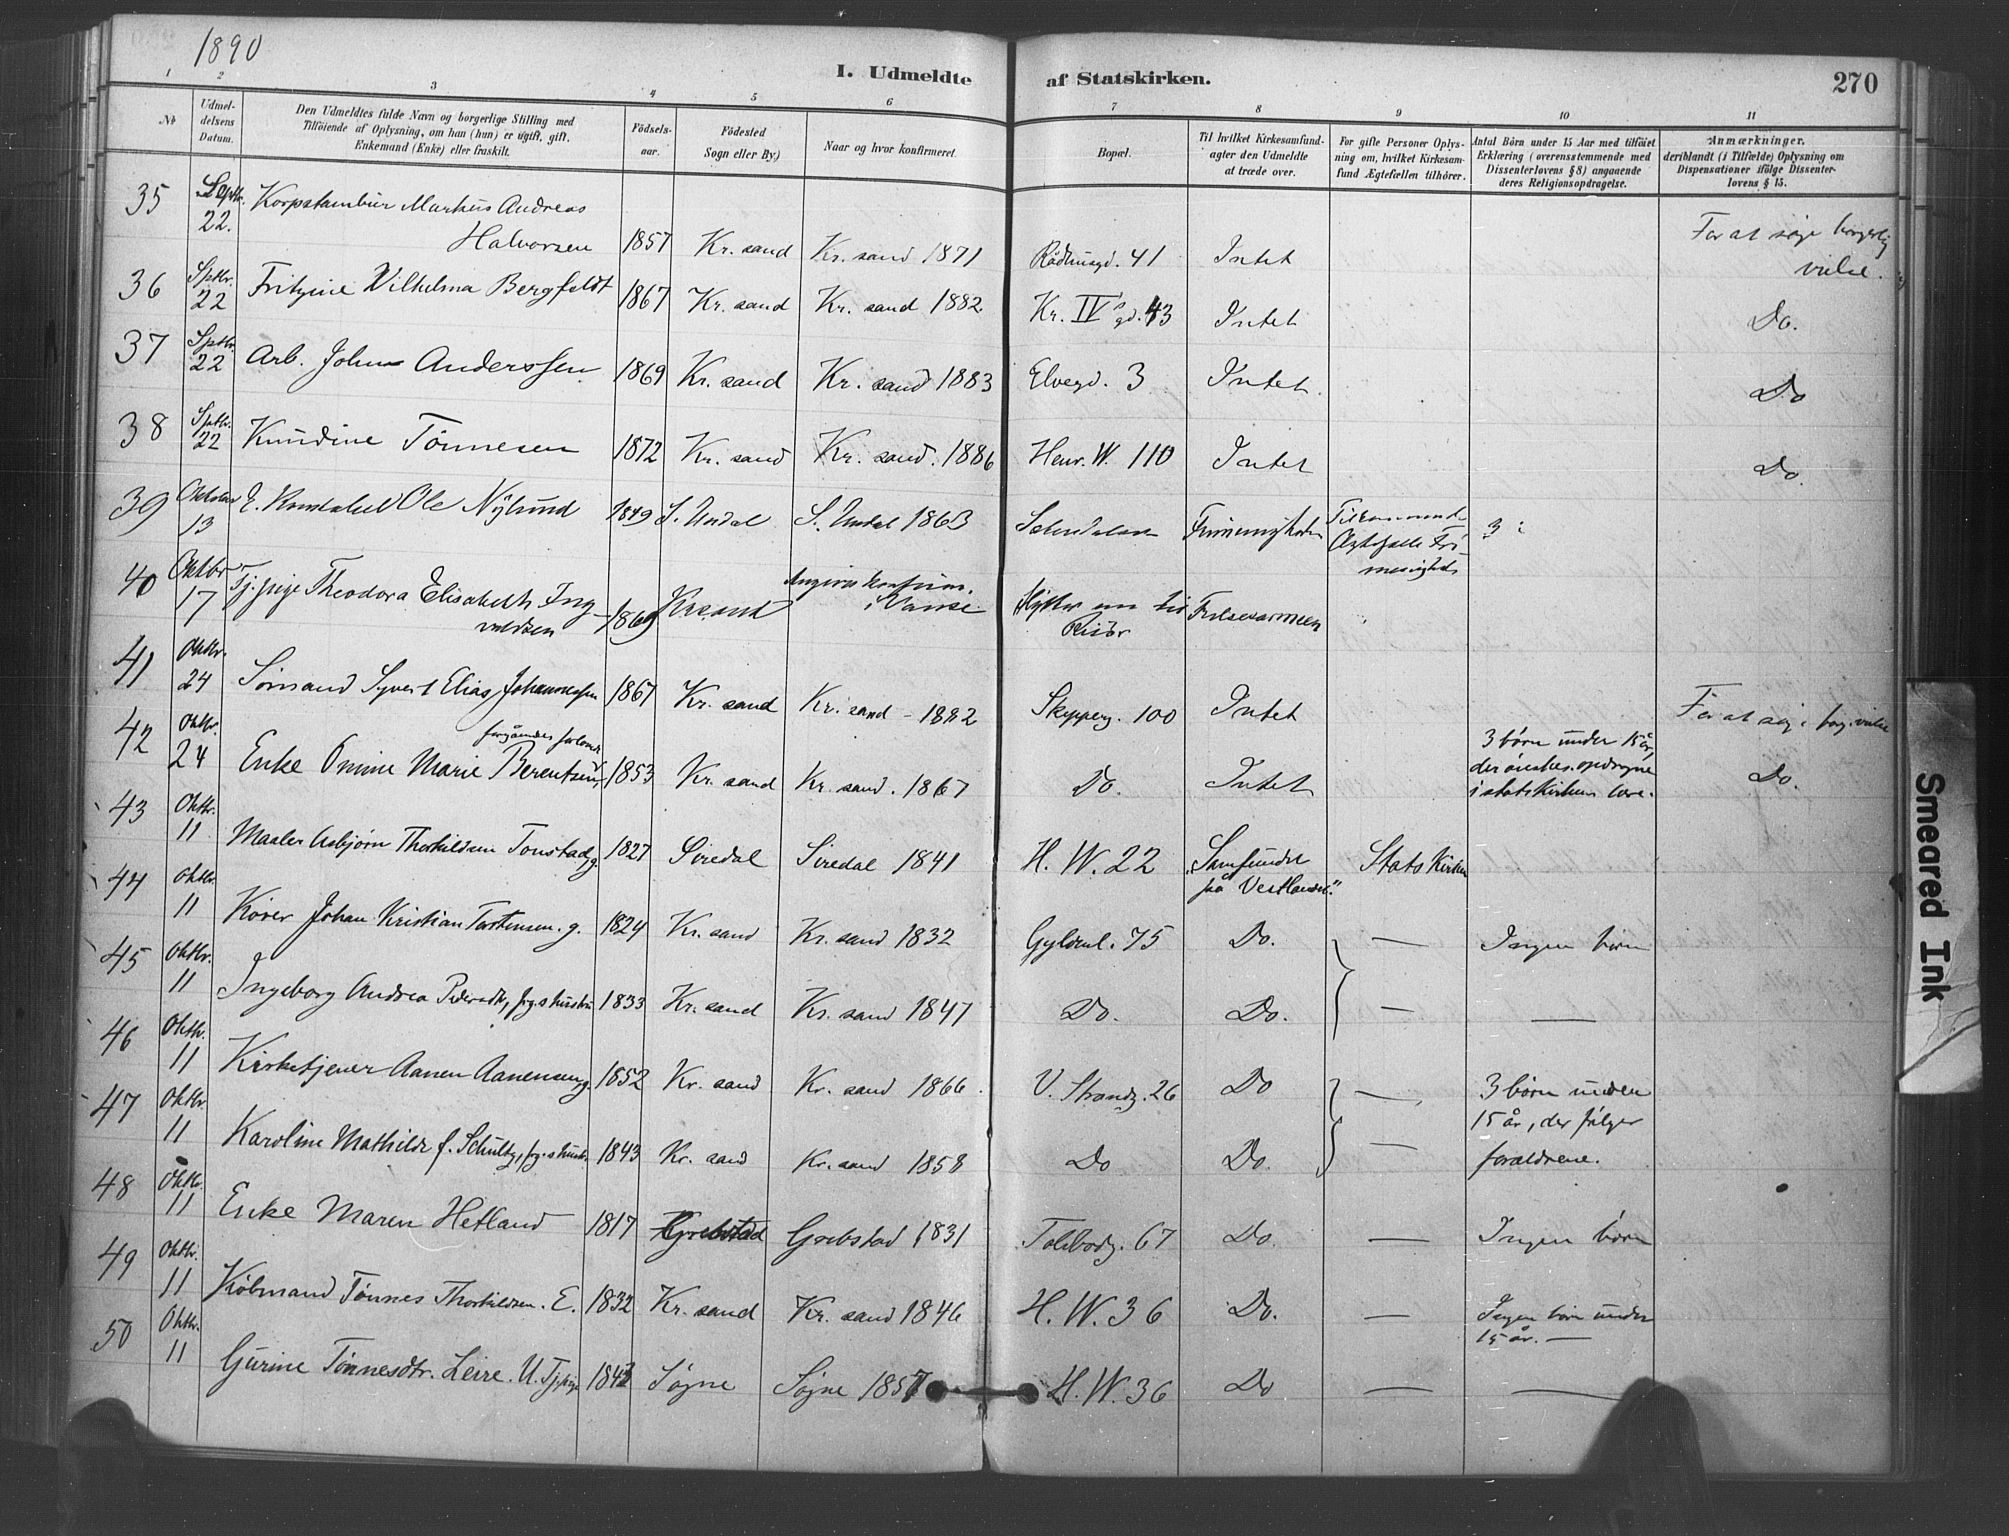 1890
I. Udmeldte af Statskirken.
270
1 2 3 4 5 6 7 8 9 10 11
No
Udmeldelsens Datum.
Den Udmeldtes fulde Navn og borgerlige Stilling med
Tilføiende af Oplysning, om han (hun) er ugift, gift,
Enkemand (Enke) eller fraskilt.
Fødselsaar.
Fødested
Sogn eller By.)
Naar og hvor konfirmeret.
Bopæl.
Til hvilket Kirkesamfund-
agter den Udmeldte
at træde over.
For gifte Personer Oplys-
ning om, hvilket Kirkesam-
fund Ægtefællen tilhører.
Antal Børn under 15 Aar med tilføiet
Erklæring (overensstemmende med
Dissenterlovens § 8) angaaende
deres Religionsopdragelse.
Anmærkninger,
deriblandt (i Tilfælde) Oplysning om
Dispensationer ifølge Dissenter-
lovens § 15.
35 Septbr. 22. Korpstambur Markus Andreas
Halvorsen 1857 Kr. sand Kr. sand 1871 Rådhusgd. 41 Intet For at søge borgerlig
vielse.
36 Sptbr. 22 Fritzine Wilhelma Bergfeldt 1867 Kr. sand Kr. sand 1882 Kr. IV's gd. 43 Intet Do.
37 Sptbr. 22 Arb. Johns Anderssen 1869 Kr. sand Kr. sand 1883 Elvegd. 3 Intet. Do
38 Sptbr. 22 Knudine Tönnesen 1872 Kr. sand Kr. sand. 1886 Henr. W. 110 Intet Do.
39 Oktober 13 Ole Nylund 1849 S. Undal S. Undal 1863 3
40 Oktbr 17 Tj. pige Theodora Elisabeth Ing-
valdsen 1869 Kr.sand konfirm.
i Vanse Flytter til
Risør Frelsesarmeen
41 Oktbr. 24 Sömand Syvert Elias Johannessen 1867 Kr. sand Kr. sand - 1882 Skipperg. 100 Intet For at søge borg. vielse
42 Oktbr. 24 foregåendes forlovede
Enke Marie Berentsen, 1853 Kr. sand Kr. sand. 1867 Do. Intet 3 børn under 15 år,
der ønskes opdragne
i statskirkens lære. Do.
43 Oktbr. 11 Maaler Asbjørn Thorkildsen Tonstad g. 1827 Siredal Siredal 1841 H. W. 22 "Samfundet
på Vestlandet." Statskirken
44 Oktbr. 11 Kører Johan Kristian Torstensen. g. 1824 Kr. sand Kr. sand 1832 Gyldenl. 75 Do. — Ingen børn
45 Oktbr. 11 Ingeborg Andrea Pedersdtr, frg.s hustru 1833 Kr. sand Kr. sand 1847 Do. Do. — —
46 Oktbr. 11 Kirketjener Aanen Aanensen g. 1852 Kr. sand Kr. sand 1866. V. Strandg. 26 Do — 3 børn under
15 år, der følger
forældrene.
47 Oktbr. 11 Karoline Mathilde f. Schultz, frg.s hustr. 1843 Kr. sand Kr. sand 1858 Do Do. —
48 Oktbr. 11 Enke Maren Hetland 1817 Grebstad Grebstad 1831 Toldbodg. 67 Do. — Ingen børn
49 Oktbr. 11 Købmand Tønnes Thorkildsen. E. 1832 Kr. sand Kr. sand 1846 H. W. 36 Do. — Ingen børn under
15 år. —
50 Oktbr. 11 Gurine Tönnesdtr. Leire. U. Tj.pige 1842 Søgne Søgne 1857 H. W. 36 Do — —
Smeared Ink